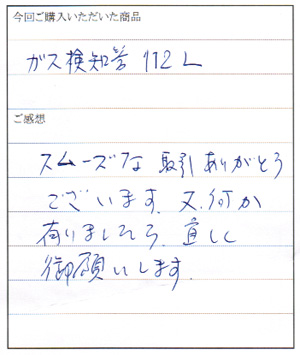 今回ご購入いただいた商品
ガス検知管 112L
ご感想
スムーズな 取引ありがとう
ございます. 又.何か
有りましたら. 宜しく
御願いします.